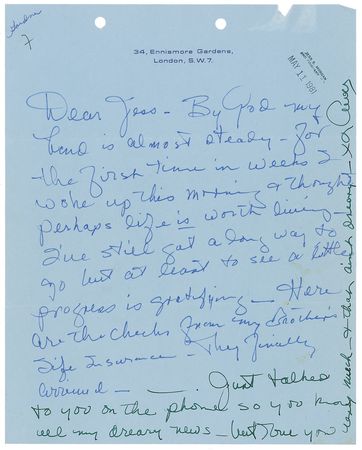 Gardner
7
34, Ennismore Gardens,
London, S.W.7.
MAY 11 1981
Dear Jess - By God my
hand is almost steady - for
the first time in weeks I
woke up this morning & thought
perhaps life is worth living -
I've still got a long way to
go but at least to see a little
progress is gratifying - Here
are the checks from my Brother's
Life Insurance - They finally
arrived -
Just talked
to you on the phone so you know
all my dreary news - but love you
very much - & that ain't dreary - xx